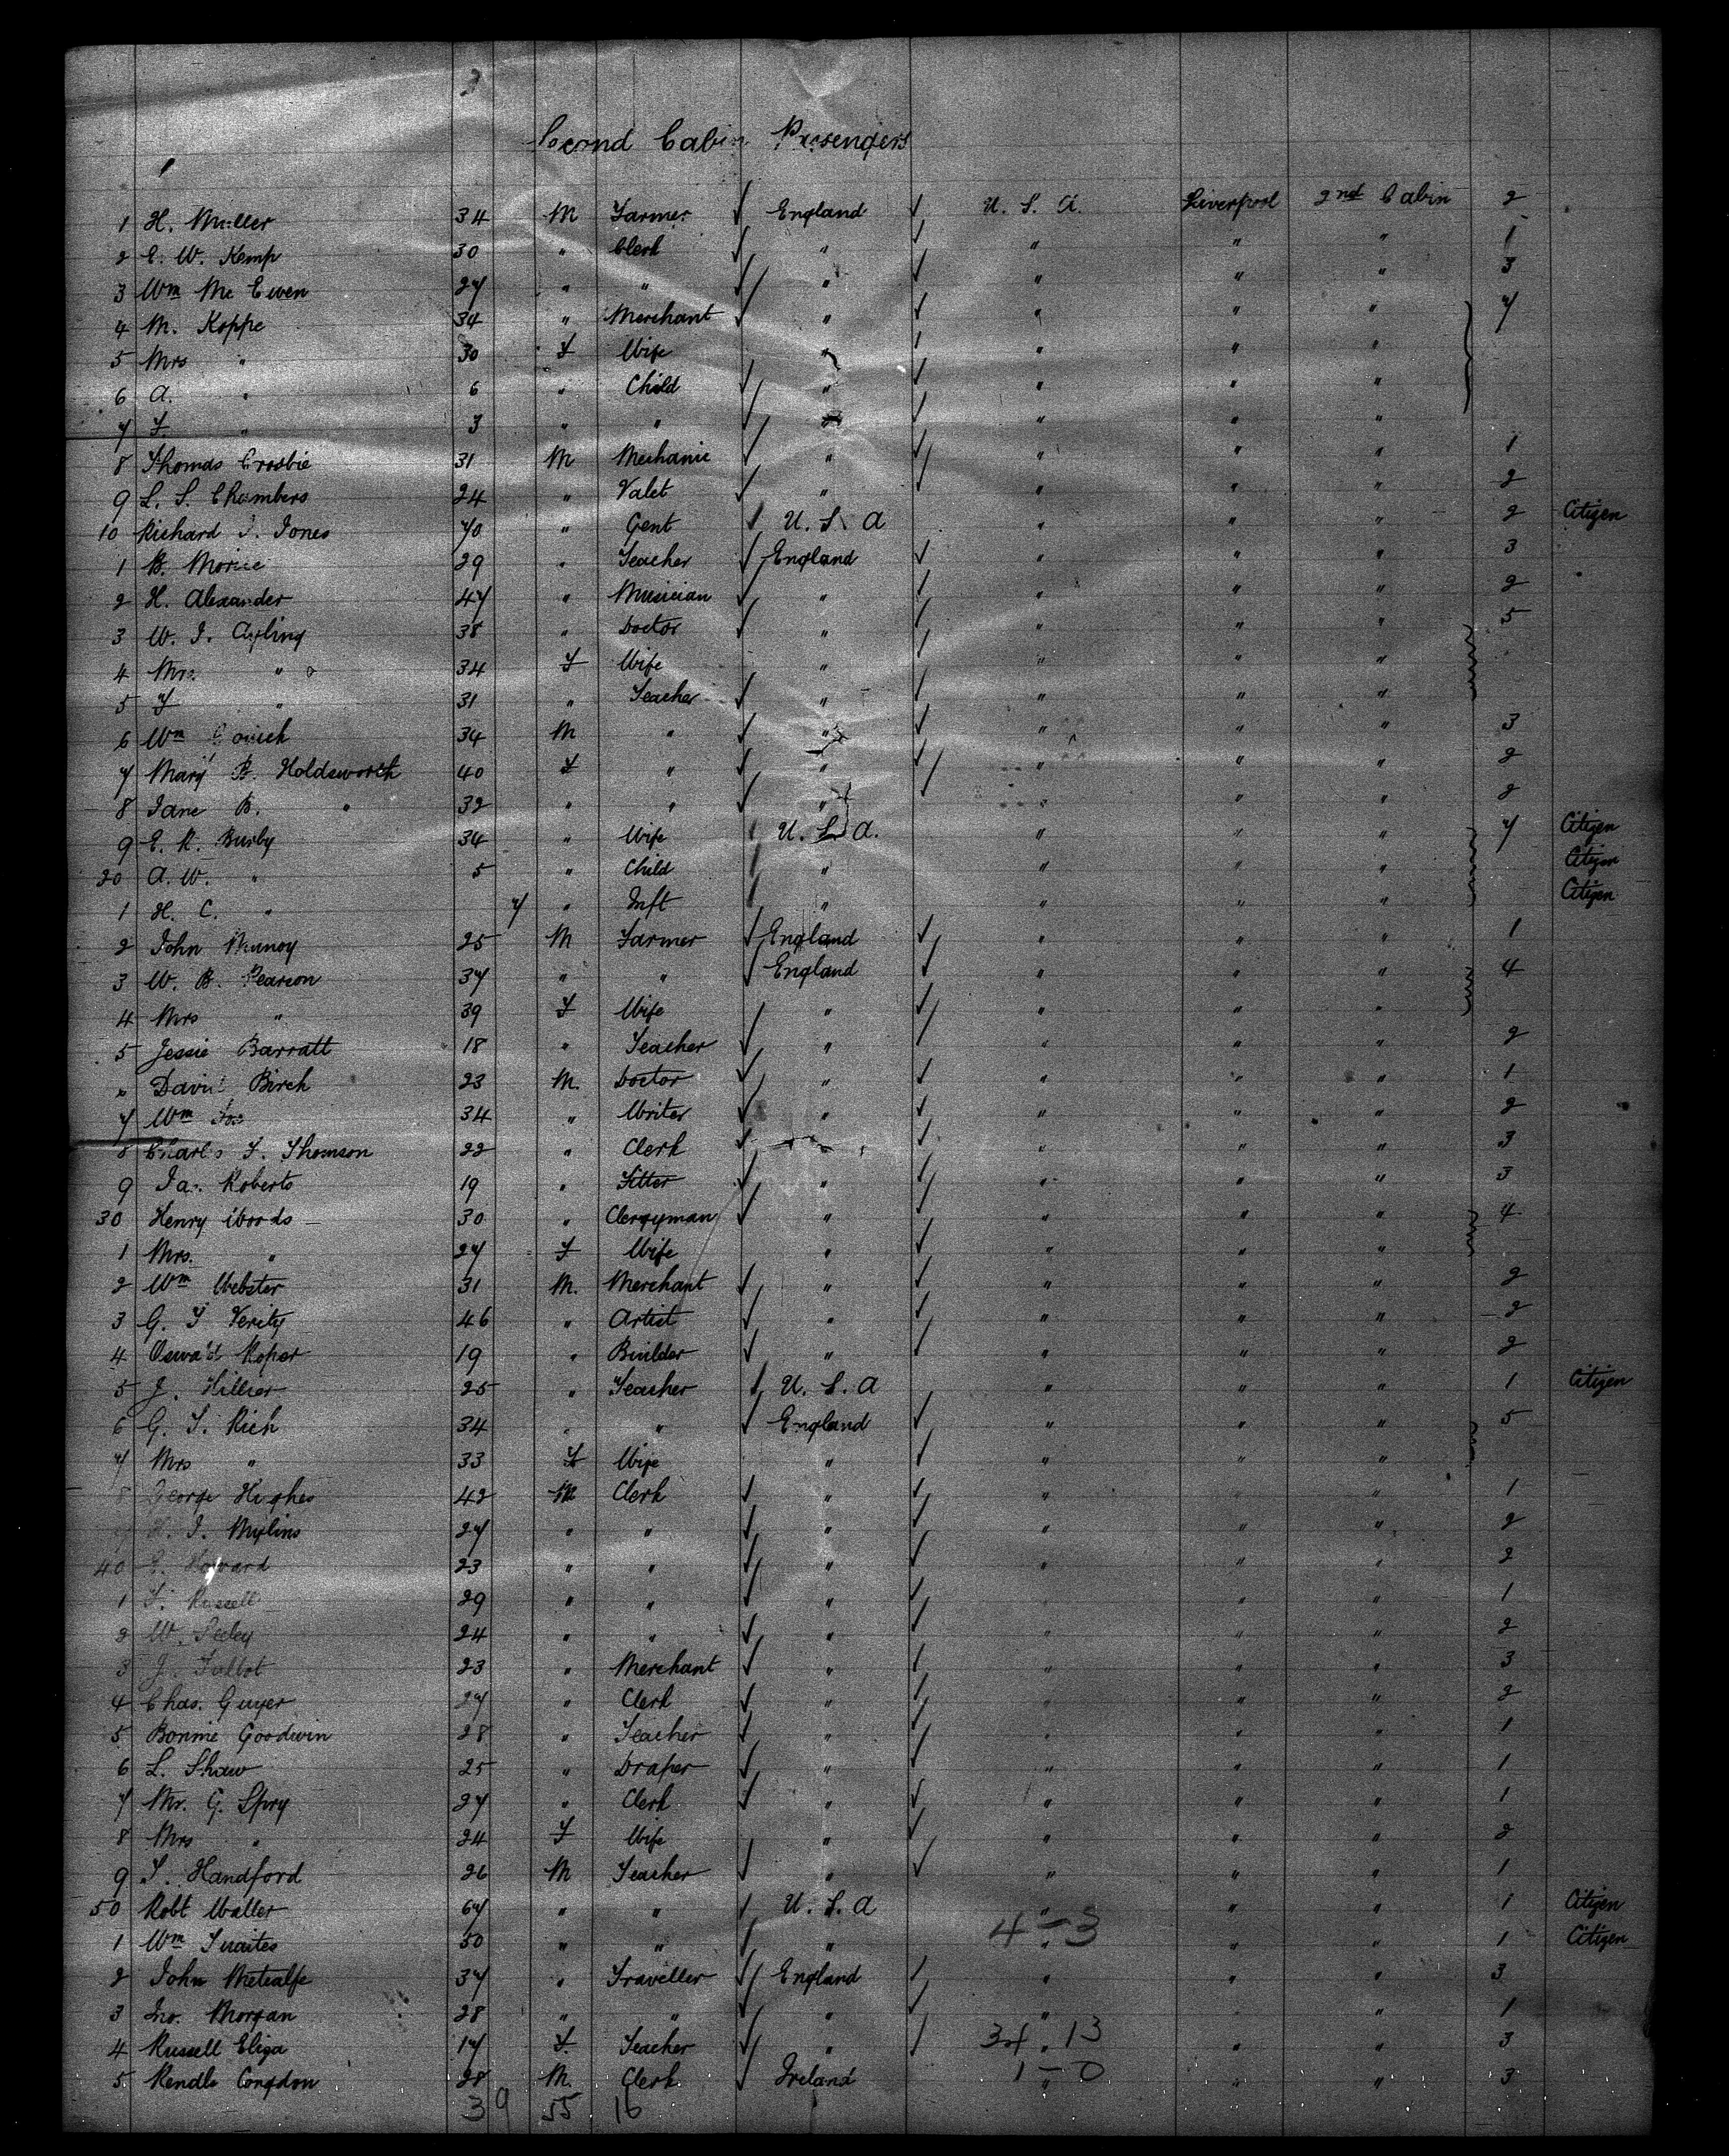 Second Cabin Passengers
1 H. Muller 34 M Farmer England U. S. A. Liverpool 2nd Cabin 2
2 E. W. Kemp 30 " Clerk " " " " 1
3 Wm Mc Ewen 27 " " " " " " 3
4 M. Koppe 34 " Merchant " " " " 7
5 Mrs " 30 F Wife " " " "
6 A. " 6 " Child " " " "
7 F. " 3 " " " " " "
8 Thomas Crosbie 31 M Mechanic " " " " 1
9 L. S. Chambers 24 " Valet " " " " 2
10 Richard J. Jones 70 " Gent U. S. A " " " 2 Citizen
1 B. 29 " Teacher England " " " 3
2 H. Alexander 47 " Musician " " " " 2
3 W. J. Ayling 38 " Doctor " " " " 5
4 Mrs. " 34 F Wife " " " "
5 F " 31 " Teacher " " " "
6 Wm 34 M " " " " " 3
7 Mary B. Holdsworth 40 F " " " " " 2
8 Jane B. " 32 " " " " " " 2
9 E. R. Busby 34 " Wife U. S. A. " " " 7 Citizen
20 A. W. " 5 " Child " " " " Citizen
1 H. C. " 7 " Inft " " " " Citizen
2 John 25 M Farmer England " " " 1
3 W. B. Pearson 37 " " England " " " 4
4 Mrs " 39 F Wife " " " "
5 Jessie Barratt 18 " Teacher " " " " 2
" David Birch 23 M. Doctor " " " " 1
7 Wm Fox 34 " Writer " " " " 2
8 Charles F. Thomson 22 " Clerk " " " 3
9 Jas. Roberts 19 " Fitter " " " " 3
30 Henry Woods 30 " Clergyman " " " " 4
1 Mrs. " 27 F Wife " " " "
2 Wm Webster 31 M. Merchant " " " " 2
3 G. F Verity 46 " Artist " " " " 2
4 Oswald Roper 19 " Builder " " " " 2
5 J. Hillier 25 " Teacher U. S. A " " " 1 Citizen
6 G. S. Rich 34 " " England " " " 5
7 Mrs " 33 F Wife " " " "
8 George Hughes 42 M Clerk " " " " 1
H. J. Mylins 27 " " " " " " 2
40 E. Howard 23 " " " " " " 2
1 F. Russell 29 " " " " " " 1
2 W. Seeley 24 " " " " " " 2
3 J. Talbot 23 " Merchant " " " " 3
4 Chas. Guyer 27 " Clerk " " " " 2
5 Bonnie Goodwin 28 " Teacher " " " " 1
6 L. Shaw 25 " Draper " " " " 1
7 Mr. G. Spry 27 " Clerk " " " " 1
8 Mrs " 24 F Wife " " " " 2
9 T. Handford 26 M Teacher " " " " 1
50 Robt Waller 67 " " U. S. A " " " 1 Citizen
4-3
1 Wm 50 " " " " " " 1 Citizen
2 John Metcalfe 37 " Traveller England " " " 3
3 Jno. Morgan 28 " " " " " 1
4 Russell Eliza 17 F. Teacher " " " " 3
34 . 13
5 Rendle Congdon 28 M. Clerk Ireland " " " 3
1-0
39 55 16